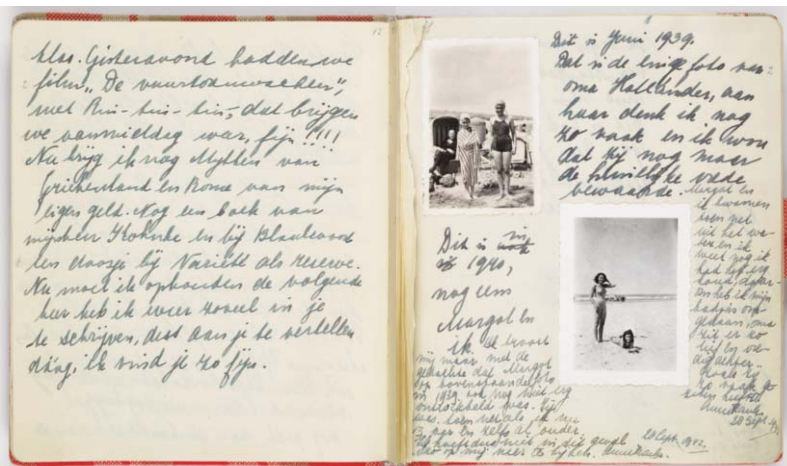 klas. Gisteravond hadden we
film „De vuurtorenwachter",
met Rin-tin-tin, dat krijgen
we vanmiddag weer, fijn!!!!
Nu krijg ik nog Mythen van
Griekenland en Rome van mijn
eigen geld. Nog een boek van
mijnheer Kohnke en bij Blankevoort
een doosje bij Variété als reserve.
Nu moet ik ophouden de volgende
keer heb ik weer zoveel in je
te schrijven, dest aan je te vertellen
dáág, ik vind je zo fijn.
Dit is Juni 1939.
Dat is de enige foto van
oma Hollander, aan
haar denk ik nog
zo vaak en ik wou
dat zij nog maar
de huiselijke vrede
bewaarde. Margot en
ik kwamen
toen net
uit het wa-
ter en ik
weet nog ik
had het erg
koud, daar-
om heb ik mijn
badjas om
gedaan, oma
zit er zo
lief en
achter.
zo vaak
Anne Frank.
28 Sept.
Dit is in
is 1940,
nog eens
Margot en
ik. Ik troost
mij maar met de
gedachte dat Margot
op bovenstaande foto
in 1939 ook nog niet erg
ontwikkeld was. Zij
was toen net als ik nu
13 jaar en zelfs al ouder.
Ze hoeft dus niet in dit geval
zo op mij neer te kijken. Anne Frank.
28 Sept. 1942.